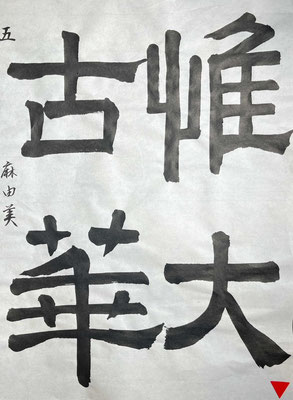 惟大
古華
五 麻由美